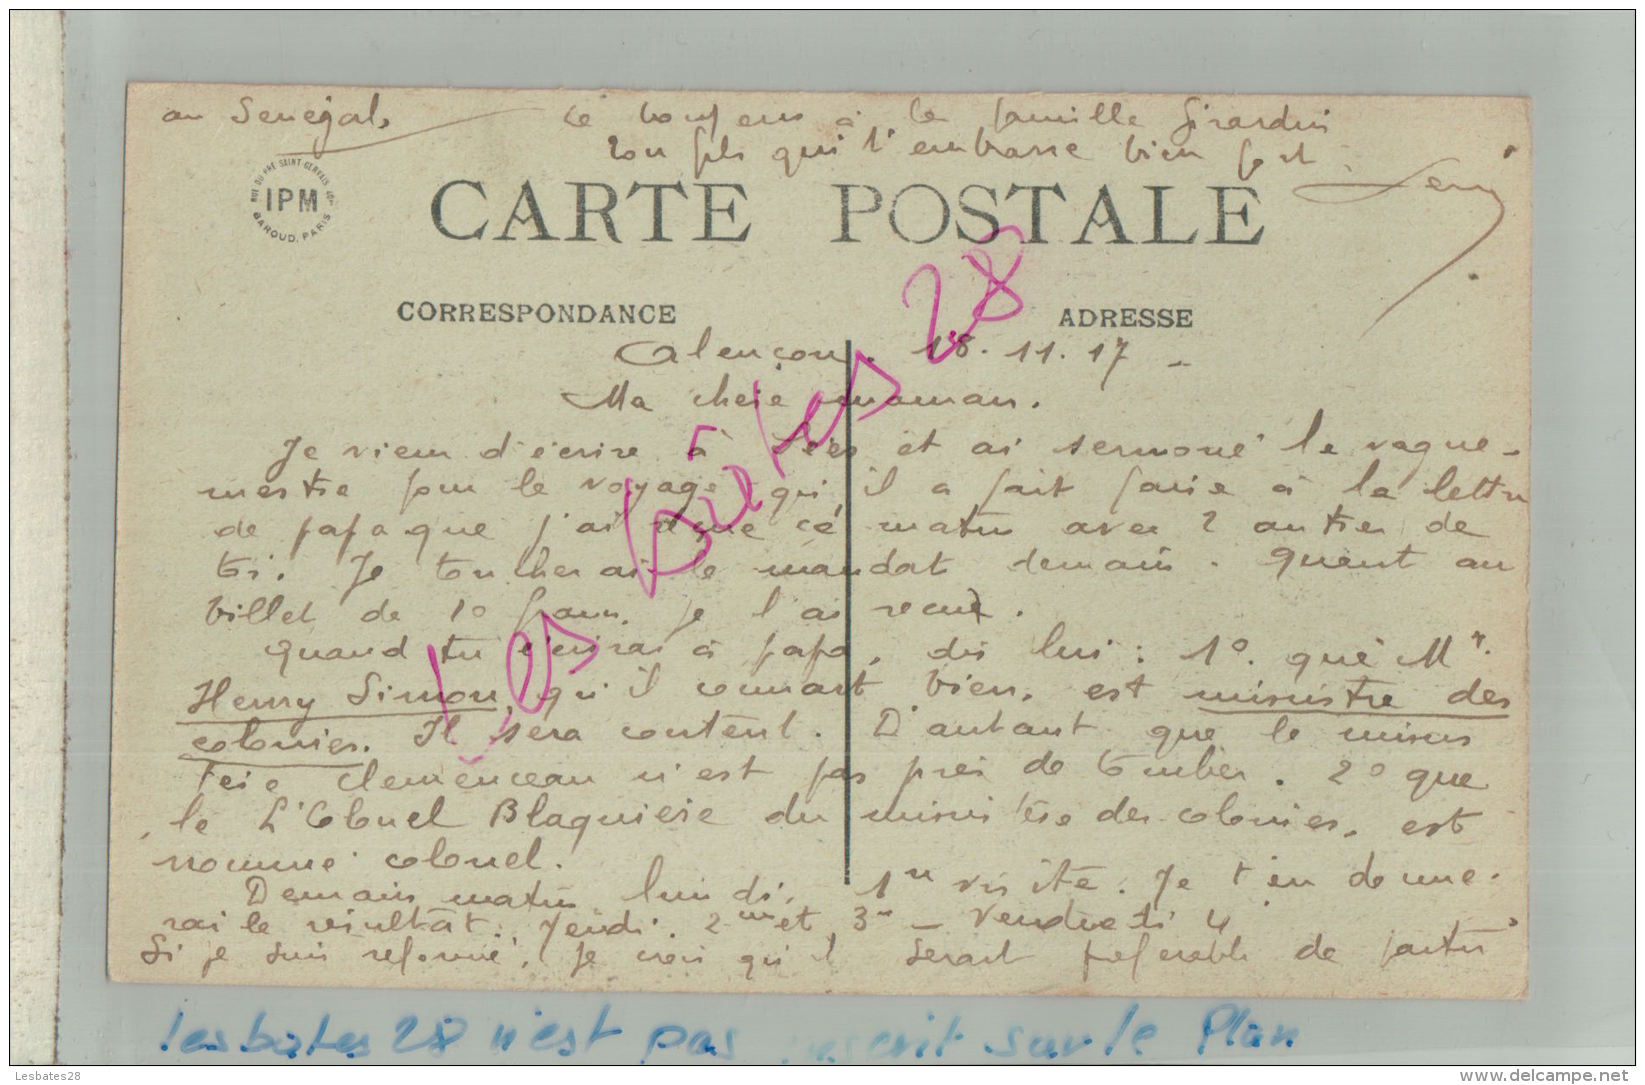 au Senégal,
à la famille Girardin
ton fils qui t'embrasse bien fort
RUE DU PRÉ SAINT-GERVAIS
IPM
BAROUD, PARIS
CARTE POSTALE
CORRESPONDANCE
ADRESSE
Alençon. 18.11.17 -
Ma cheie maman.
Je viens d'écrire à et ai sermoné le vague-
mestre pour le voyage qu'il a fait faire à la lettre
de papa que j'ai reçue ce matin avec 2 autres de
toi. Je toucherai le mandat demain. Quant au
billet de 10 francs, je l'ai recue.
Quand tu écriras à papa, dis lui : 1° que Mr.
Henry Simon, qu'il connait bien, est ministre des
colonies. Il sera content. D'autant que le minis
tere Clemenceau n'est pas près de tomber. 2° que
le L'Colonel Blaquiere du ministère des colonies, est
nommé colonel.
Demain matin lundi, 1re visite. Je t'en donne-
rai le résultat. Jeudi. 2me et 3e - Vendredi 4
Si je suis réformé, je crois qu'il serait préférable de partir
Les bates 28
les bates 28 n'est pas inscrit sur le Plan
Lesbates28
delcampe.net